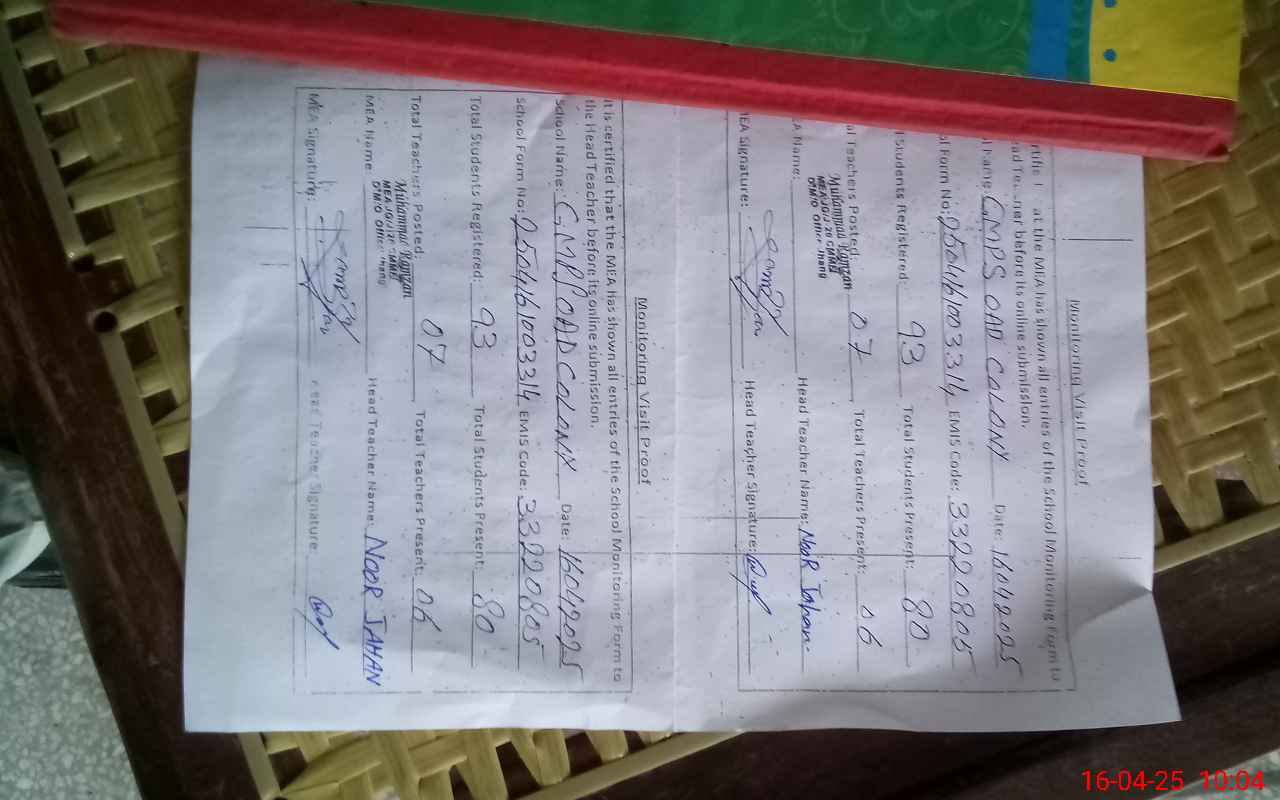 Monitoring Visit Proof
rtifie at the MEA has shown all entries of the School Monitoring Form to
ner before its online submission.
Name GMPS OAD COLONY Date: 16042025
Form No: 250461003314 EMIS Code: 33220805
Students Registered: 93 Total Students Present: 80
Teachers Posted: 07 Total Teachers Present: 06
Muhammad Ramzan
Name: Head Teacher Name: NooR Jahan
MEA Signature: Head Teacher Signature:
Monitoring Visit Proof
It is certified that the MEA has shown all entries of the School Monitoring Form to
the Head Teacher before its online submission.
School Name: GMPS OAD COLONY Date: 16042025
School Form No: 250461003314 EMIS Code: 33220805
Total Students Registered: 93 Total Students Present: 80
Total Teachers Posted: 07 Total Teachers Present: 06
Muhammad Ramzan
MEA Name Head Teacher Name: NOOR JAHAN
MEA Signature: Head Teacher Signature:
16-04-25 10:04